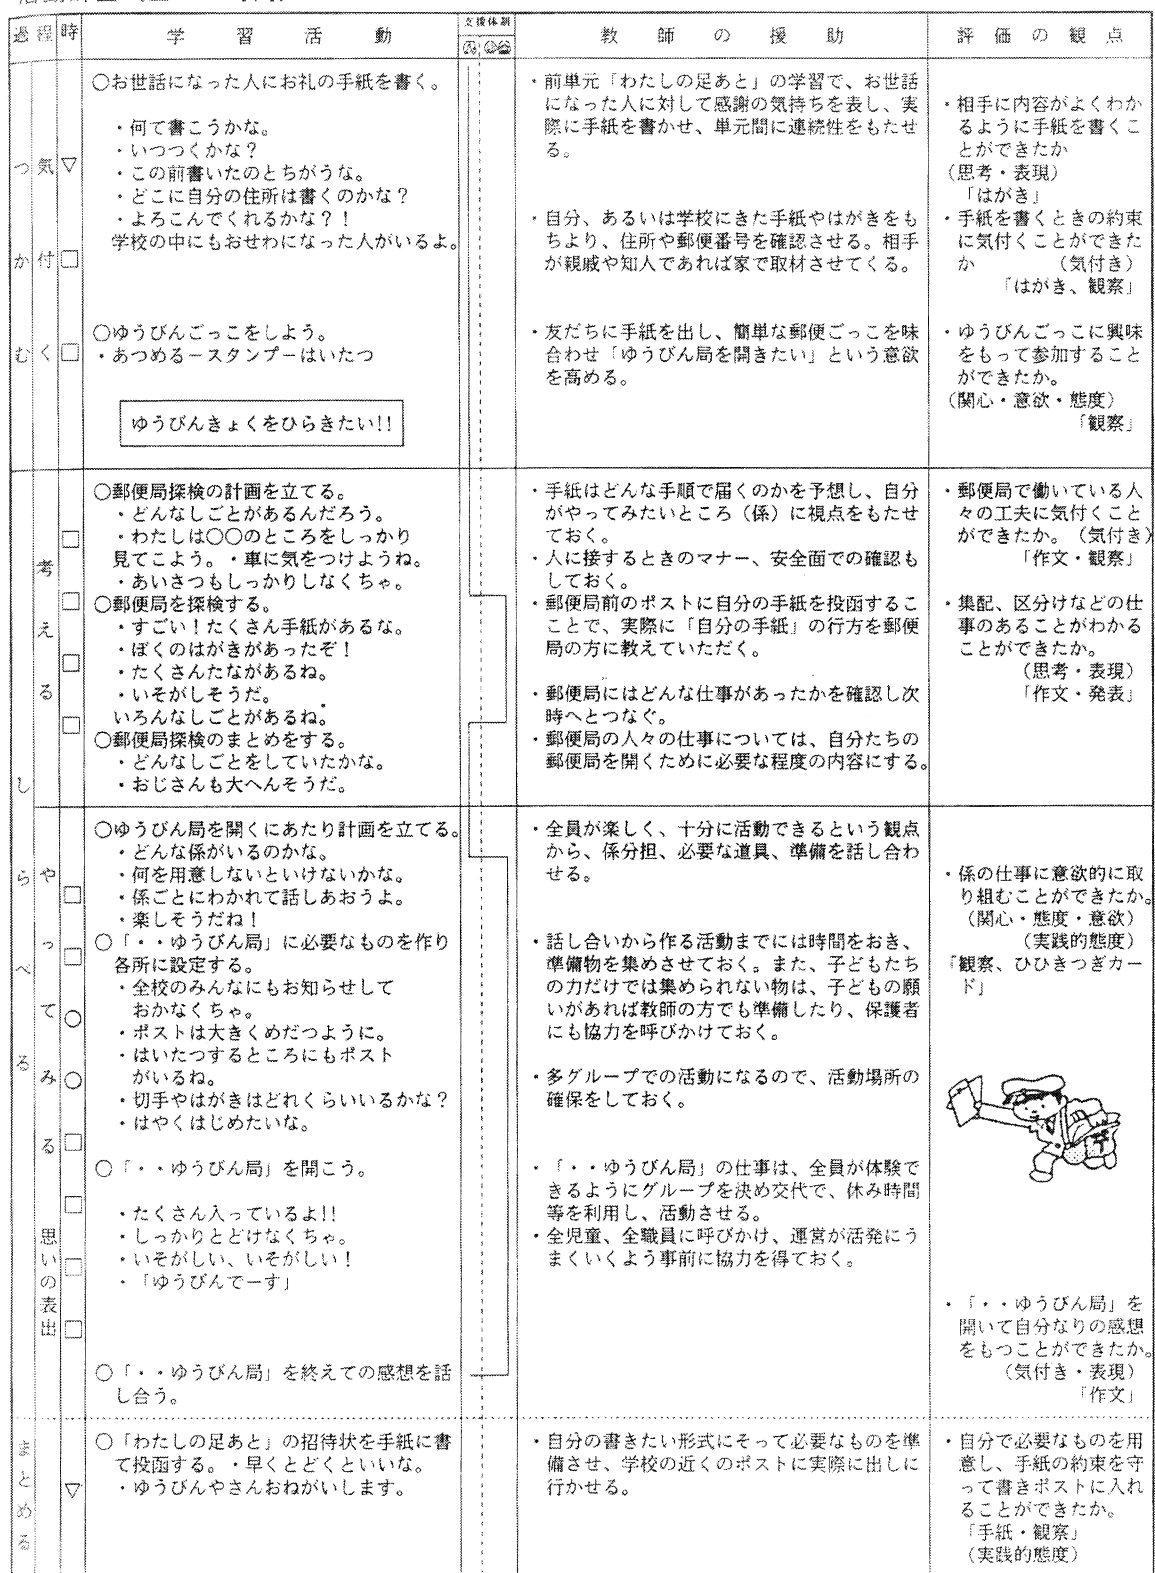 過程 時 学習活動 支援体制 教師の援助 評価の観点
つかむ
気付く
▽
□
□
○お世話になった人にお礼の手紙を書く。
・何て書こうかな。
・いつつくかな？
・この前書いたのとちがうな。
・どこに自分の住所は書くのかな？
・よろこんでくれるかな？！
学校の中にもおせわになった人がいるよ。
○ゆうびんごっこをしよう。
・あつめる－スタンプ－はいたつ
ゆうびんきょくをひらきたい!!
・前単元「わたしの足あと」の学習で、お世話
になった人に対して感謝の気持ちを表し、実
際に手紙を書かせ、単元間に連続性をもたせ
る。
・自分、あるいは学校にきた手紙やはがきをも
ちより、住所や郵便番号を確認させる。相手
が親戚や知人であれば家で取材させてくる。
・友だちに手紙を出し、簡単な郵便ごっこを味
合わせ「ゆうびん局を開きたい」という意欲
を高める。
・相手に内容がよくわか
るように手紙を書くこ
とができたか
（思考・表現）
「はがき」
・手紙を書くときの約束
に気付くことができた
か　　　（気付き）
「はがき、観察」
・ゆうびんごっこに興味
をもって参加すること
ができたか。
（関心・意欲・態度）
「観察」
しらべる
考える
□
□
□
□
○郵便局探検の計画を立てる。
・どんなしごとがあるんだろう。
・わたしは○○のところをしっかり
見てこよう。・車に気をつけようね。
・あいさつもしっかりしなくちゃ。
○郵便局を探検する。
・すごい！たくさん手紙があるな。
・ぼくのはがきがあったぞ！
・たくさんたながあるね。
・いそがしそうだ。
いろんなしごとがあるね。
○郵便局探検のまとめをする。
・どんなしごとをしていたかな。
・おじさんも大へんそうだ。
・手紙はどんな手順で届くのかを予想し、自分
がやってみたいところ（係）に視点をもたせ
ておく。
・人に接するときのマナー、安全面での確認も
しておく。
・郵便局前のポストに自分の手紙を投函するこ
ことで、実際に「自分の手紙」の行方を郵便
局の方に教えていただく。
・郵便局にはどんな仕事があったかを確認し次
時へとつなぐ。
・郵便局の人々の仕事については、自分たちの
郵便局を開くために必要な程度の内容にする。
・郵便局で働いている人
々の工夫に気付くこと
ができたか。（気付き）
「作文・観察」
・集配、区分けなどの仕
事のあることがわかる
ことができたか。
（思考・表現）
「作文・発表」
やってみる
思いの表出
□
□
○
○
□
□
□
□
○ゆうびん局を開くにあたり計画を立てる。
・どんな係がいるのかな。
・何を用意しないといけないかな。
・係ごとにわかれて話しあおうよ。
・楽しそうだね！
○「・・ゆうびん局」に必要なものを作り
各所に設定する。
・全校のみんなにもお知らせして
おかなくちゃ。
・ポストは大きくめだつように。
・はいたつするところにもポスト
がいるね。
・切手やはがきはどれくらいいるかな？
・はやくはじめたいな。
○「・・ゆうびん局」を開こう。
・たくさん入っているよ!!
・しっかりとどけなくちゃ。
・いそがしい、いそがしい！
・「ゆうびんでーす」
○「・・ゆうびん局」を終えての感想を話
し合う。
・全員が楽しく、十分に活動できるという観点
から、係分担、必要な道具、準備を話し合わ
せる。
・話し合いから作る活動までには時間をおき、
準備物を集めさせておく。また、子どもたち
の力だけでは集められない物は、子どもの願
いがあれば教師の方でも準備したり、保護者
にも協力を呼びかけておく。
・多グループでの活動になるので、活動場所の
確保をしておく。
・「・・ゆうびん局」の仕事は、全員が体験で
きるようにグループを決め交代で、休み時間
等を利用し、活動させる。
・全児童、全職員に呼びかけ、運営が活発にう
まくいくよう事前に協力を得ておく。
・係の仕事に意欲的に取
り組むことができたか。
（関心・態度・意欲）
（実践的態度）
「観察、ひひきつぎカー
ド」
・「・・ゆうびん局」を
開いて自分なりの感想
をもつことができたか。
（気付き・表現）
「作文」
まとめる
▽
○「わたしの足あと」の招待状を手紙に書
て投函する。・早くとどくといいな。
・ゆうびんやさんおねがいします。
・自分の書きたい形式にそって必要なものを準
備させ、学校の近くのポストに実際に出しに
行かせる。
・自分で必要なものを用
意し、手紙の約束を守
って書きポストに入れ
ることができたか。
「手紙・観察」
（実践的態度）